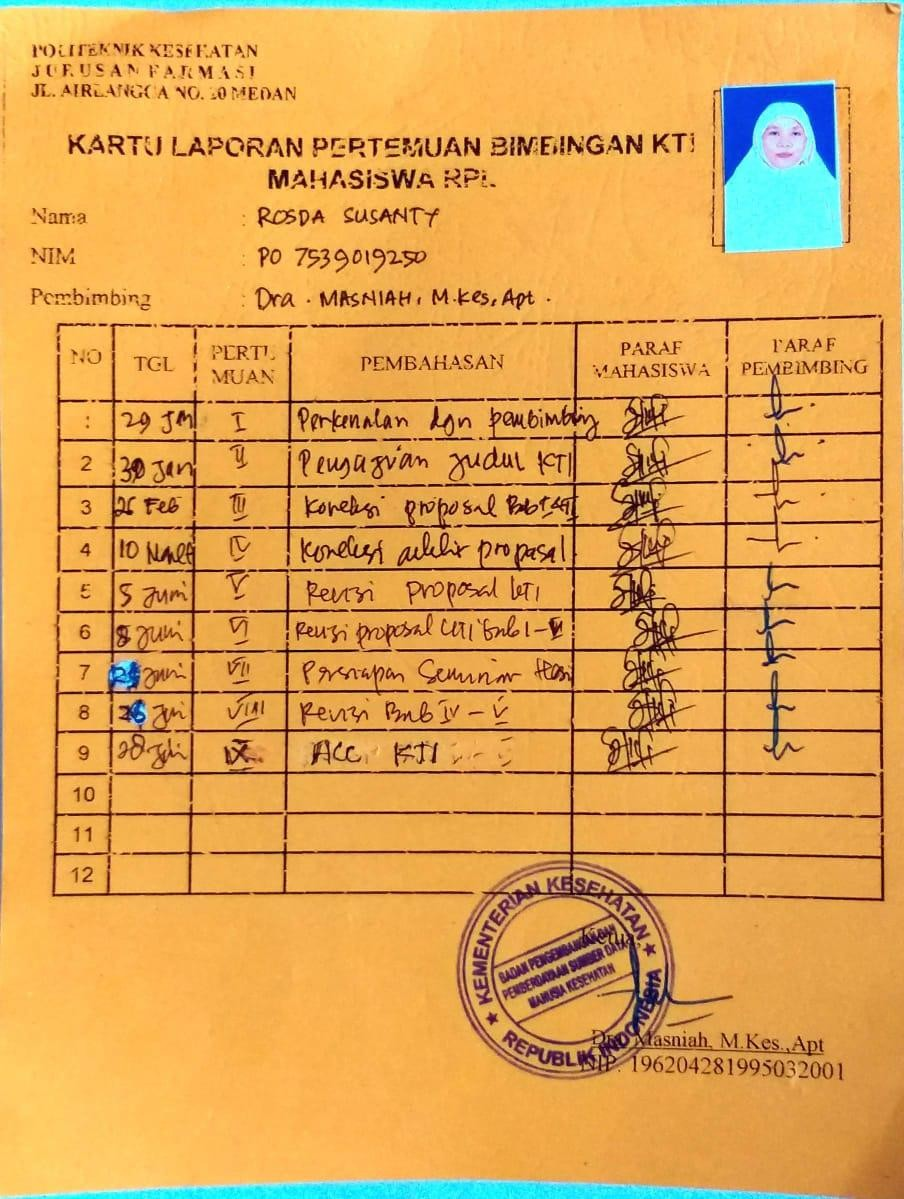 POLITEKNIK KESEHATAN
JURUSAN FARMASI
JL. AIRLANGGA NO. 20 MEDAN
KARTU LAPORAN PERTEMUAN BIMBINGAN KTI
MAHASISWA RPL
Nama : ROSDA SUSANTY
NIM : PO 7539019250
Pembimbing : Dra. MASNIAH, M.Kes, Apt.
NO TGL PERTEMUAN PEMBAHASAN PARAF MAHASISWA PARAF PEMBIMBING
1 29 Jan I Perkenalan dgn pembimbing
2 30 Jan II Pengajuan judul KTI
3 26 Feb III Koreksi proposal Bab
4 10 Maret IV Koreksi akhir proposal
5 5 Juni V Revisi proposal KTI
6 8 Juni VI Revisi proposal KTI Bab I -
7 Juni VII Persiapan Seminar Hasil
8 26 VIII Revisi Bab IV - V
9 28 IX ACC KTI
10
11
12
KEMENTERIAN KESEHATAN
BADAN PENGEMBANGAN DAN
PEMBERDAYAAN SUMBER DAYA
MANUSIA KESEHATAN
REPUBLIK INDONESIA
Ketua,
Dra. Masniah, M.Kes.,Apt
NIP. 196204281995032001